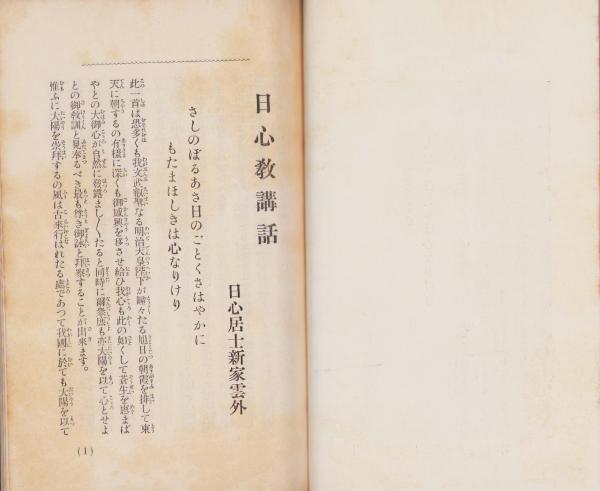 日心敎講話
日心居士新家雲外
さしのぼるあさ日のごとくさはやかに
もたまほしきは心なりけり
此一首は恐多くも我文武叡聖なる明治天皇陛下が皞々たる旭日の朝霞を排して東
天に朝するの有樣に深くも御感興を移させ給ひ我心も此の如くして蒼生を惠まば
やとの大御心が自然に發露ましましたると同時に爾衆庶も亦大陽を以て心とせよ
との御敎訓と見奉るべき最も尊き御詠と拜察することが出來ます。
惟ふに大陽を崇拜するの風は古來行はれたる處であつて我國に於ても大陽を以て
(1)